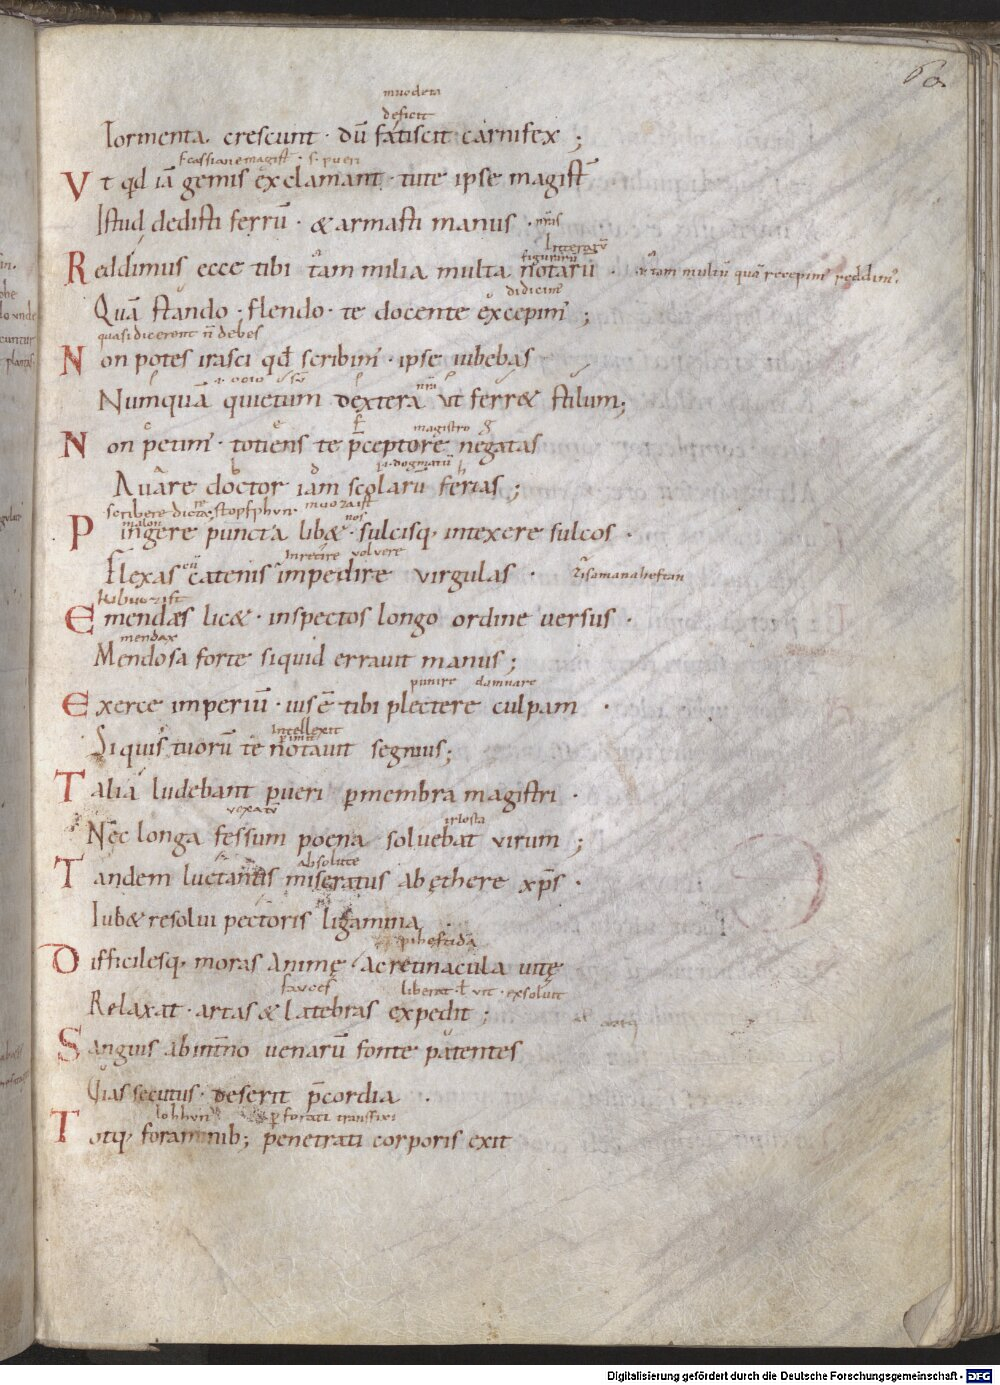 60
muodeta
deficit
Tormenta crescunt · dū fatiscit carnifex ;
s cassiane magist̄ · s · pueri
Vt qd iā gemis exclamant · tute ipse magist̄
Istud dedisti ferrū · & armasti manus ·
Litteratū
figurarū
Reddimus ecce tibi tam milia multa notarū ·
tam multū quā recepim reddim̄ ·
didicim̄
Quā stando · flendo · te docente excepim̄ ;
quasi dicerent n̄ debes
Non potes irasci qđ scribim̄ · ipse iubebas
Numquā quietum dextera ut ferr& stilum ;
magistro
Non petim̄ · totiens te p̄ceptore negatas
dogmatū
Auare doctor iam scolarū ferias ;
scribere dictae stopfphun · muozist
Pingere puncta lib& · sulcisq, intexere sulcos ·
inretire volvere
Flexas catenis impedire virgulas ·
Emendes lic& · inspectos longo ordine uersus ·
mendax
Mendosa forte siquid erraut manus ;
punire damnare
Exerce imperiū · ius ē tibi plectere culpam ·
Intellexit
Siquis tuorū te notauit segnius ;
Talia ludebant pueri p membra magistri ·
vexatū
irlosta
Nec longa fessum poena soluebat virum ;
absolute
Tandem luctantis miseratus ab ęthere xp̄s ·
Iub& resolui pectoris ligamina ·
Difficilesq, moras animę · ac retinacula uitę
fauces liberat · exsoluit
Relaxat · artas & latebras expedit ;
Sanguis ab intimo uenarū fonte patentes
Uias secutus · deserit p̄cordia ·
lohhun perforati transfixi
Totq, foraminib; penetrati corporis exit
Digitalisierung gefördert durch die Deutsche Forschungsgemeinschaft - DFG